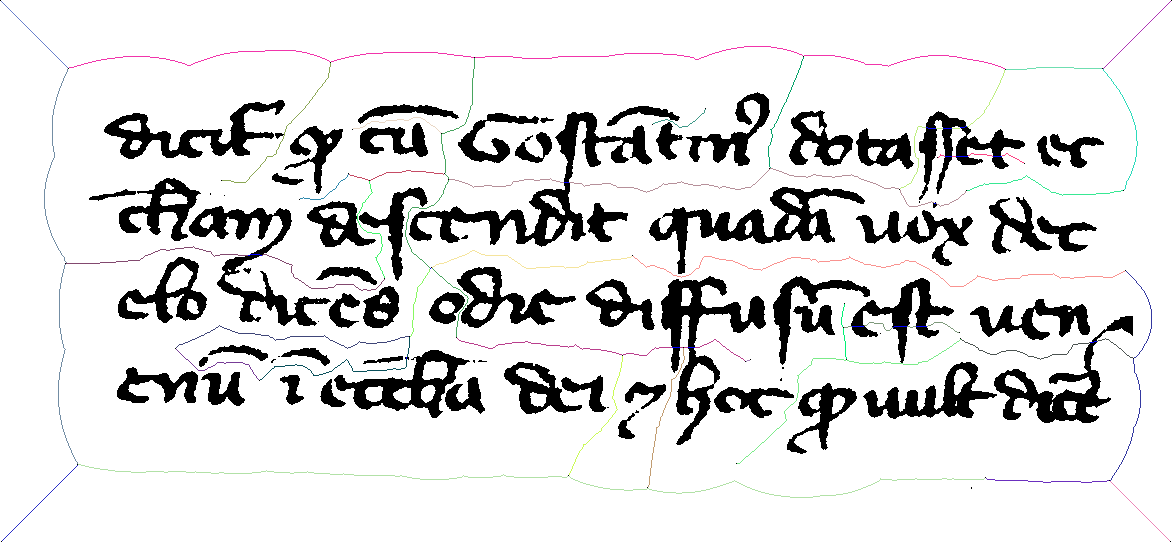 dicit̄ ꝙ cū Gostātinꝰ dotasset ec
ch̄am descendit quadā uox de c
elo dicēs odie diffusū est uen
enū ī ecc̄ha dei ⁊ hoc ꝙ uult dicē